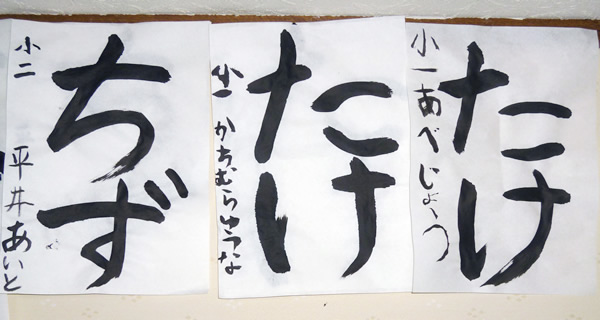 たけ
小一あべじょう
たけ
小一かちむらゆうな
ちず
小二 平井あいと